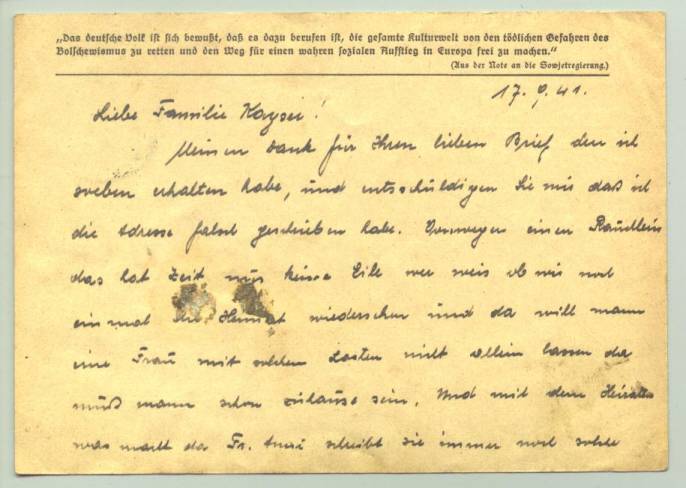 „Das deutsche Volk ist sich bewußt, daß es dazu berufen ist, die gesamte Kulturwelt von den tödlichen Gefahren des
Bolschewismus zu retten und den Weg für einen wahren sozialen Aufstieg in Europa frei zu machen.“
(Aus der Note an die Sowjetregierung.)
17. 9. 41.
Liebe Familie Kaysei!
Meinen dank für Ihren lieben Brief den ich
soeben erhalten habe, und entschuldigen Sie mir daß ich
die Adresse falsch geschrieben habe. Vonwegen einen
das hat Zeit keine Eile wer weis ob wir noch
einmal die Heimat wiedersehen und da will mann
eine Frau mit solchen Lasten nicht allein lassen da
muß mann schon zuhause sein. Und mit dem Heiraten
was macht da Fr. schreibt sie immer noch solche